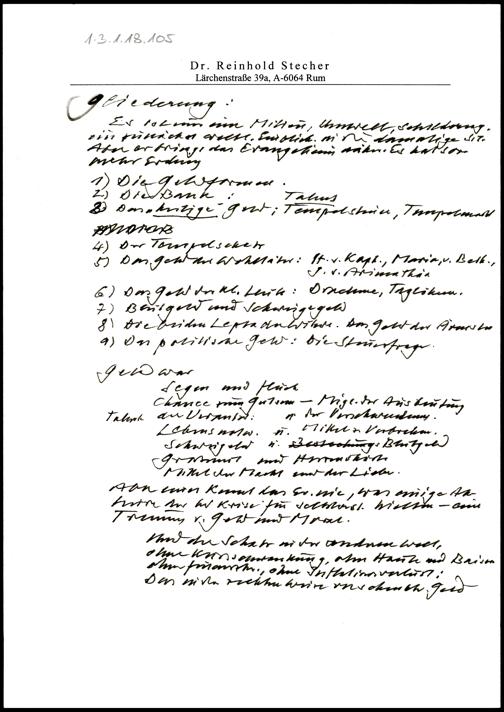 1.3.1.18.105
Dr. Reinhold Stecher
Lärchenstraße 39a, A-6064 Rum
Gliederung:
Es ist nun eine Milieu, Umwelt, schilderung.
ein Einblick in die damalige
Aber er bringt das Evangelium näher. Es hat so
mehr Erdung
1) Die Geldformen.
2) Die Bank: Talente
3) Das heilige Geld; Tempelsteuer, Tempelmarkt
4) Der Tempelschatz
5) Das Geld der Wohltäter: H. v. Kaph., Maria v. Beth.,
J. v. Arimathäa
6) Das Geld der kl. Leute: Drachme, Taglöhner.
7) Blutgeld und Schweigegeld
8) Die beiden Lepta der Witwe. Das Geld der Armut
9) Das politische Geld: Die Steuerfrage.
Geld war
Segen und Fluch
Chance zum Guten – Mögl. der Ausbeutung
Talent der Verantw. u. der Verschwendung.
Lebens u. Mittel z. Verbrechen.
Schweigeld u. Bestechung: Blutgeld
und
Mittel der Macht und der Liebe.
Aber eines kennt das Ev. nie, was einige
der Krise für halten – eine
Trennung v. Geld und Moral.
Und die Schatz in der anderen Welt,
ohne Kursschwankung, ohne Hausse und Baisse
ohne, ohne Inflationsverlust:
Das in der rechten Weise verschenkte Geld